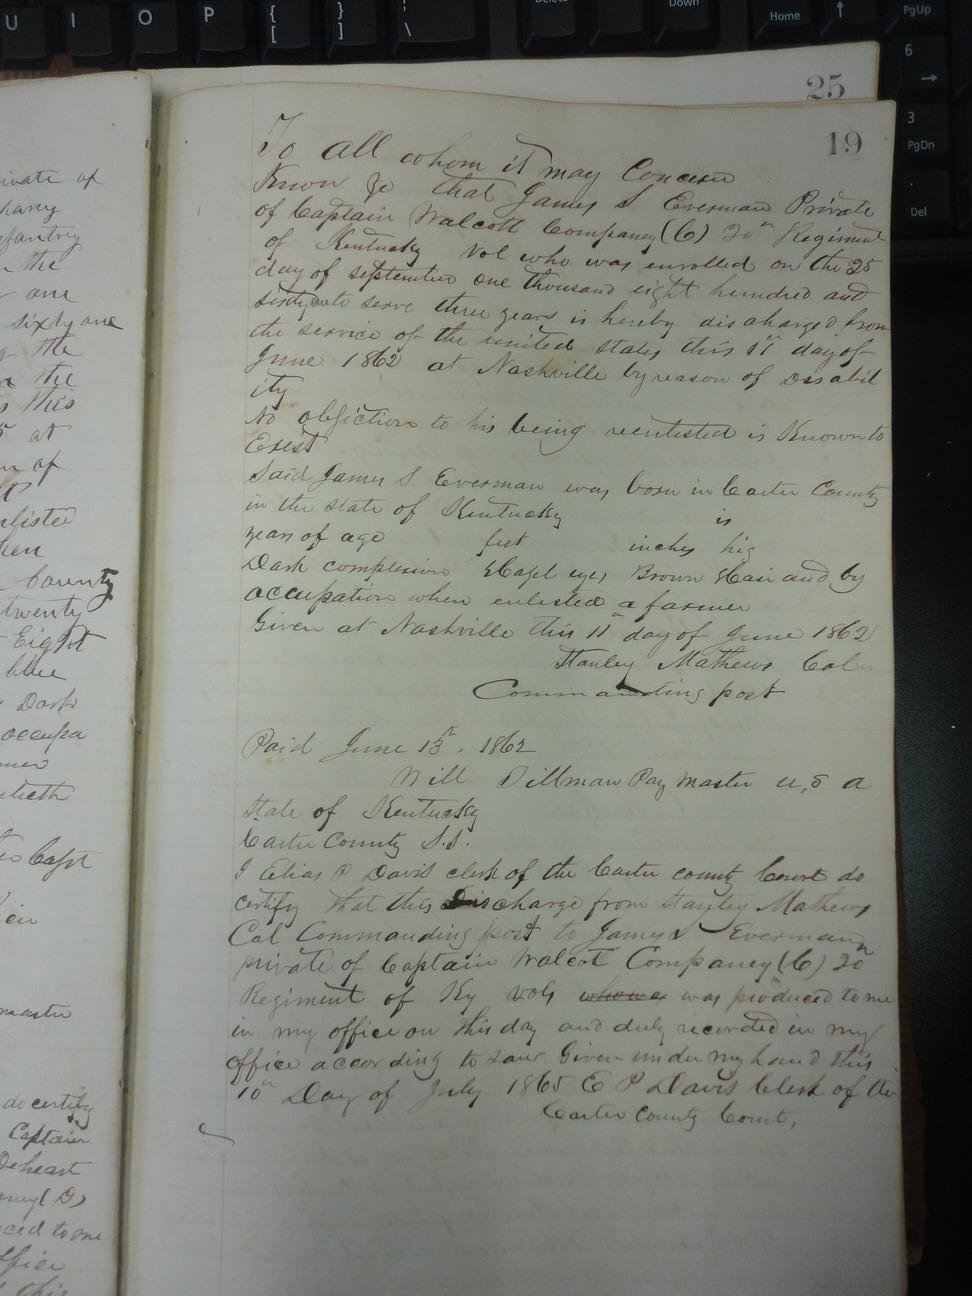 U I O P { [ } ] | \ Delete Down Home ↑ PgUp
6 →
3 PgDn
. Del
25
19
To all whom it may Concern
Know ye that James S Everman Private
of Captain Walcott Company (C) 20th Regiment
of Kentucky Vol who was enrolled on the 25
day of september one thousand eight hundred and
sixty one to serve three years is hereby discharged from
the service of the united states this 11th day of
June 1862 at Nashville by reason of Disabil
ity
No objection to his being reenlisted is Known to
Exest
Said James S Everman was born in Carter County
in the state of Kentucky is
years of age feet inches hig
Dark complexion Hazel eyes Brown Hair and by
occupation when enlisted a farmer
Given at Nashville this 11th day of June 1862
Stanley Mathews Col
Commanding post
Paid June 13th, 1862
Will Dillman Pay master u, s a
State of Kentucky
Carter County S.S.
I Elias P Davis clerk of the Carter county Court do
certify that this Discharge from Stanley Mathews
Col Commanding post to James S Evermann
private of Captain Walcot Company (C) 20th
Regiment of Ky vols who was was produced to me
in my office on this day and duly recorded in my
office according to Law Given under my hand this
10th Day of July 1865 E P Davis Clerk of the
Carter County Court,
ivate of
pany
fantry
n the
one
sixty one
the
a the
s this
5 at
of
nlisted
hen
County
twenty
Eight
blue
Dark
occupa
mer
ntieth
Capt
master
do certify
Captain
Deheart
any (D)
ced to me
ffice
this